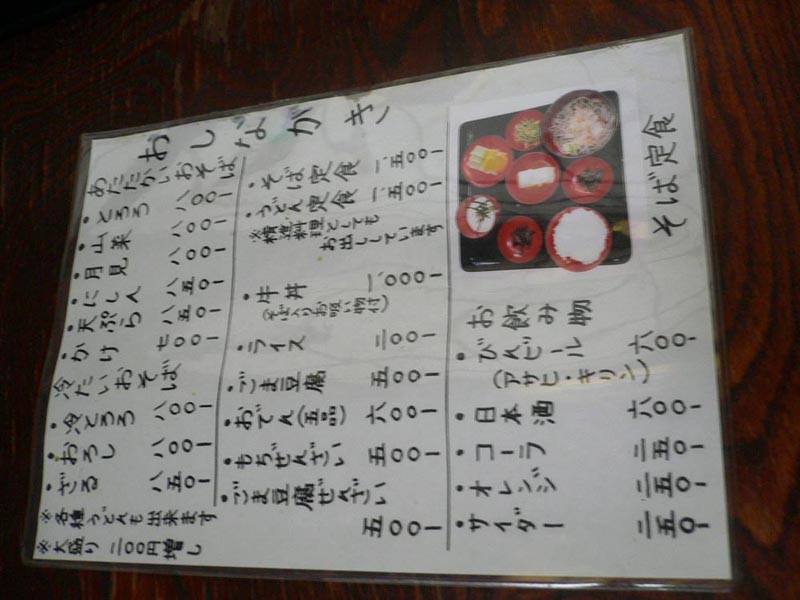 おしながき
あたたかいおそば
・とろろ 八〇〇-
・山菜 八〇〇-
・月見 八〇〇-
・にしん 八五〇-
・天ぷら 八五〇-
・かけ 七〇〇-
冷たいおそば
・冷とろろ 八〇〇-
・おろし 八〇〇-
・ざる 八五〇-
※各種うどんも出来ます
※大盛り 二〇〇円増し
・そば定食 一、五〇〇-
・うどん定食 一、五〇〇-
※精進料理としても
お出ししています
・牛丼 一、〇〇〇-
(そば入りお吸い物付)
・ライス 二〇〇-
・ごま豆腐 五〇〇-
・おでん(五品) 六〇〇-
・もちぜんざい 五〇〇-
・ごま豆腐ぜんざい
五〇〇-
そば定食
お飲み物
・びんビール 六〇〇-
(アサヒ・キリン)
・日本酒 六〇〇-
・コーラ 二五〇-
・オレンジ 二五〇-
・サイダー 二五〇-